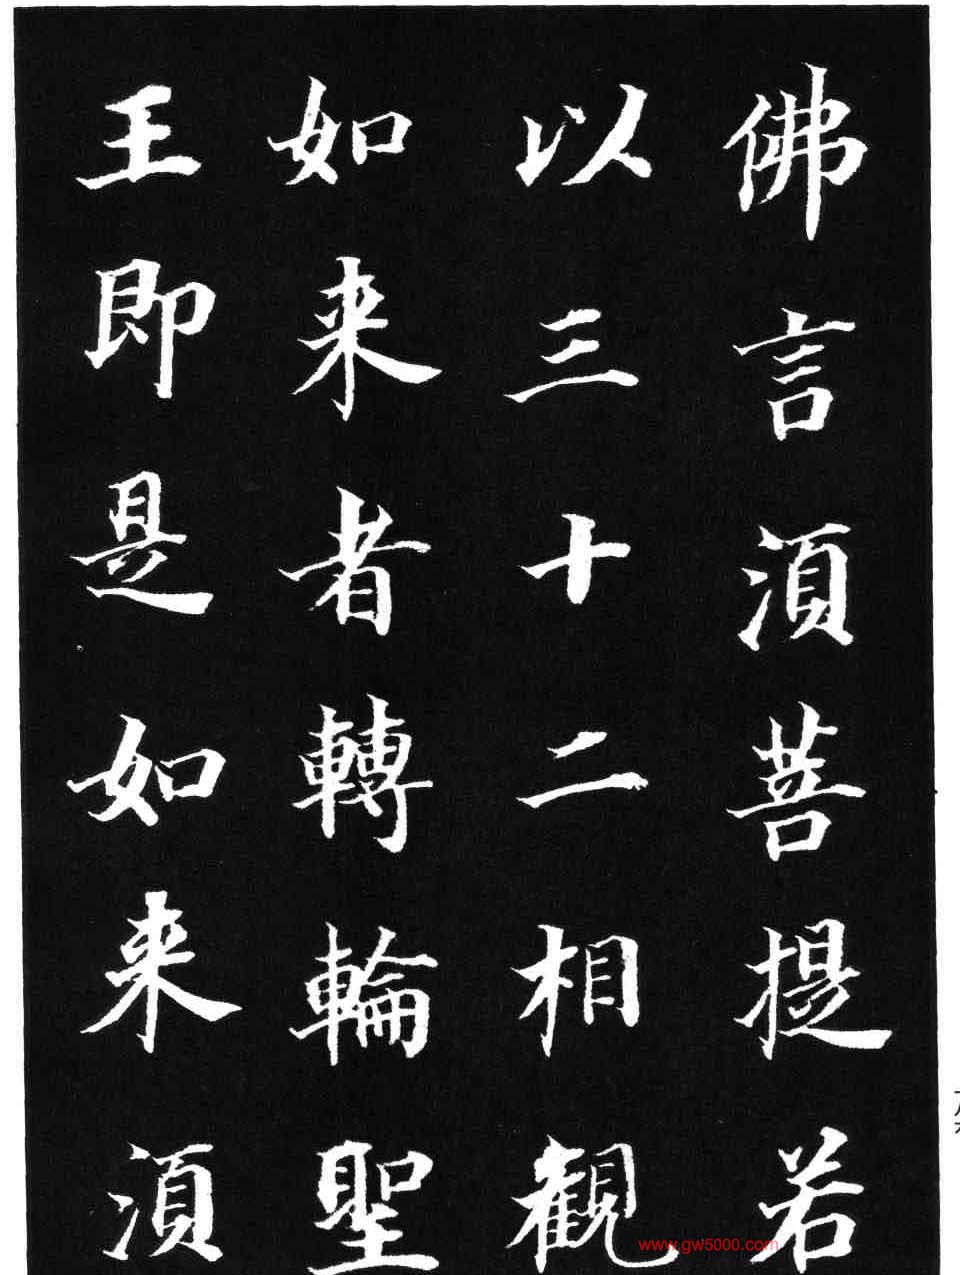 佛言須菩提若
以三十二相觀
如来者轉輪聖
王即是如来須
www.gw5000.com